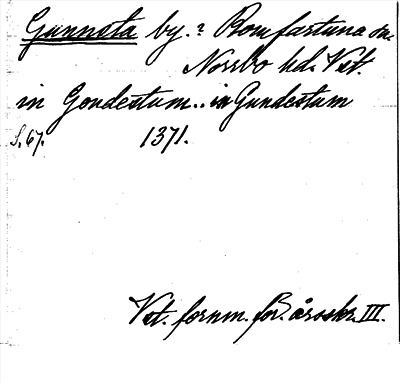 Gunnsta by.? Romfartuna sn.
Norrbo hd. Vst.
in Gondestum.. in Gundestum
S. 67. 1371.
Vst. fornm. för. årsskr. III.